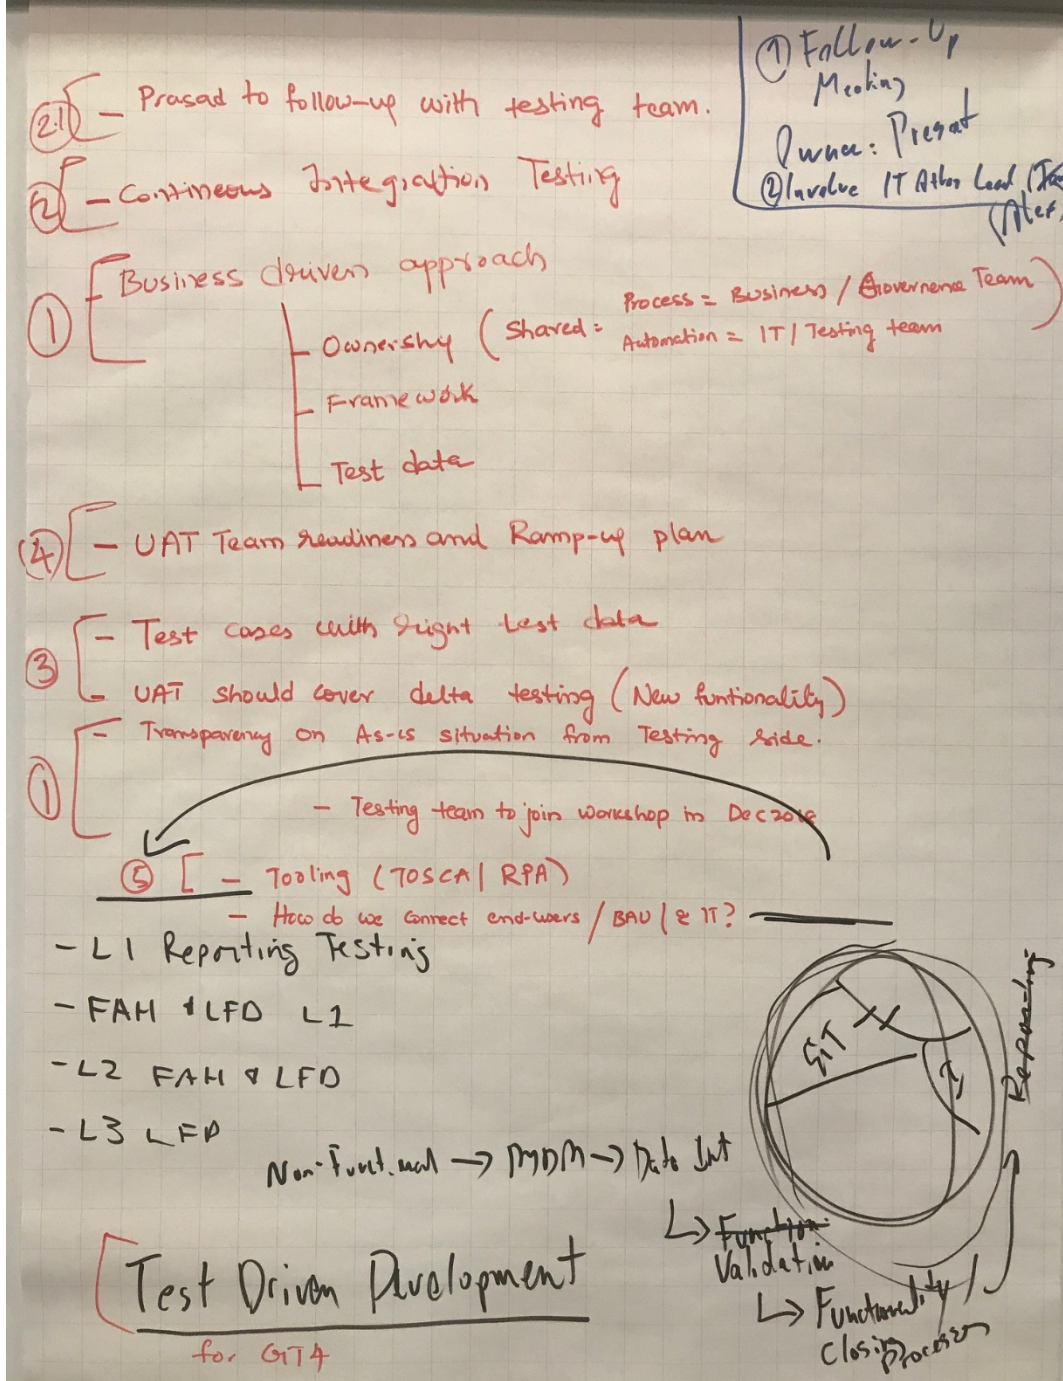 ① Follow-Up
Meeting
Owner: Presat
② Involve IT Lead
2.1 - Prasad to follow-up with testing team.
② - Contineous Integration Testing
① - Business driven approach
- Ownership (Shared = Process = Business / Governence Team
Automation = IT / Testing team)
- Framework
- Test data
④ - UAT Team readiness and Ramp-up plan
③ - Test cases with right test data
- UAT should cover delta testing (New funtionality)
① - Transparency on As-is situation from Testing side.
- Testing team to join workshop in Dec 2018
⑤ - Tooling (TOSCA / RPA)
- How do we connect end-users / BAU / & IT?
- L1 Reporting Testing
- FAH & LFD L1
- L2 FAH & LFD
- L3 LFD
GIT
Reporting
Non-Functional → MDM → Data Int
↳ Function
Validation
↳ Functionality /
Closing Processes
Test Driven Development
for GT4